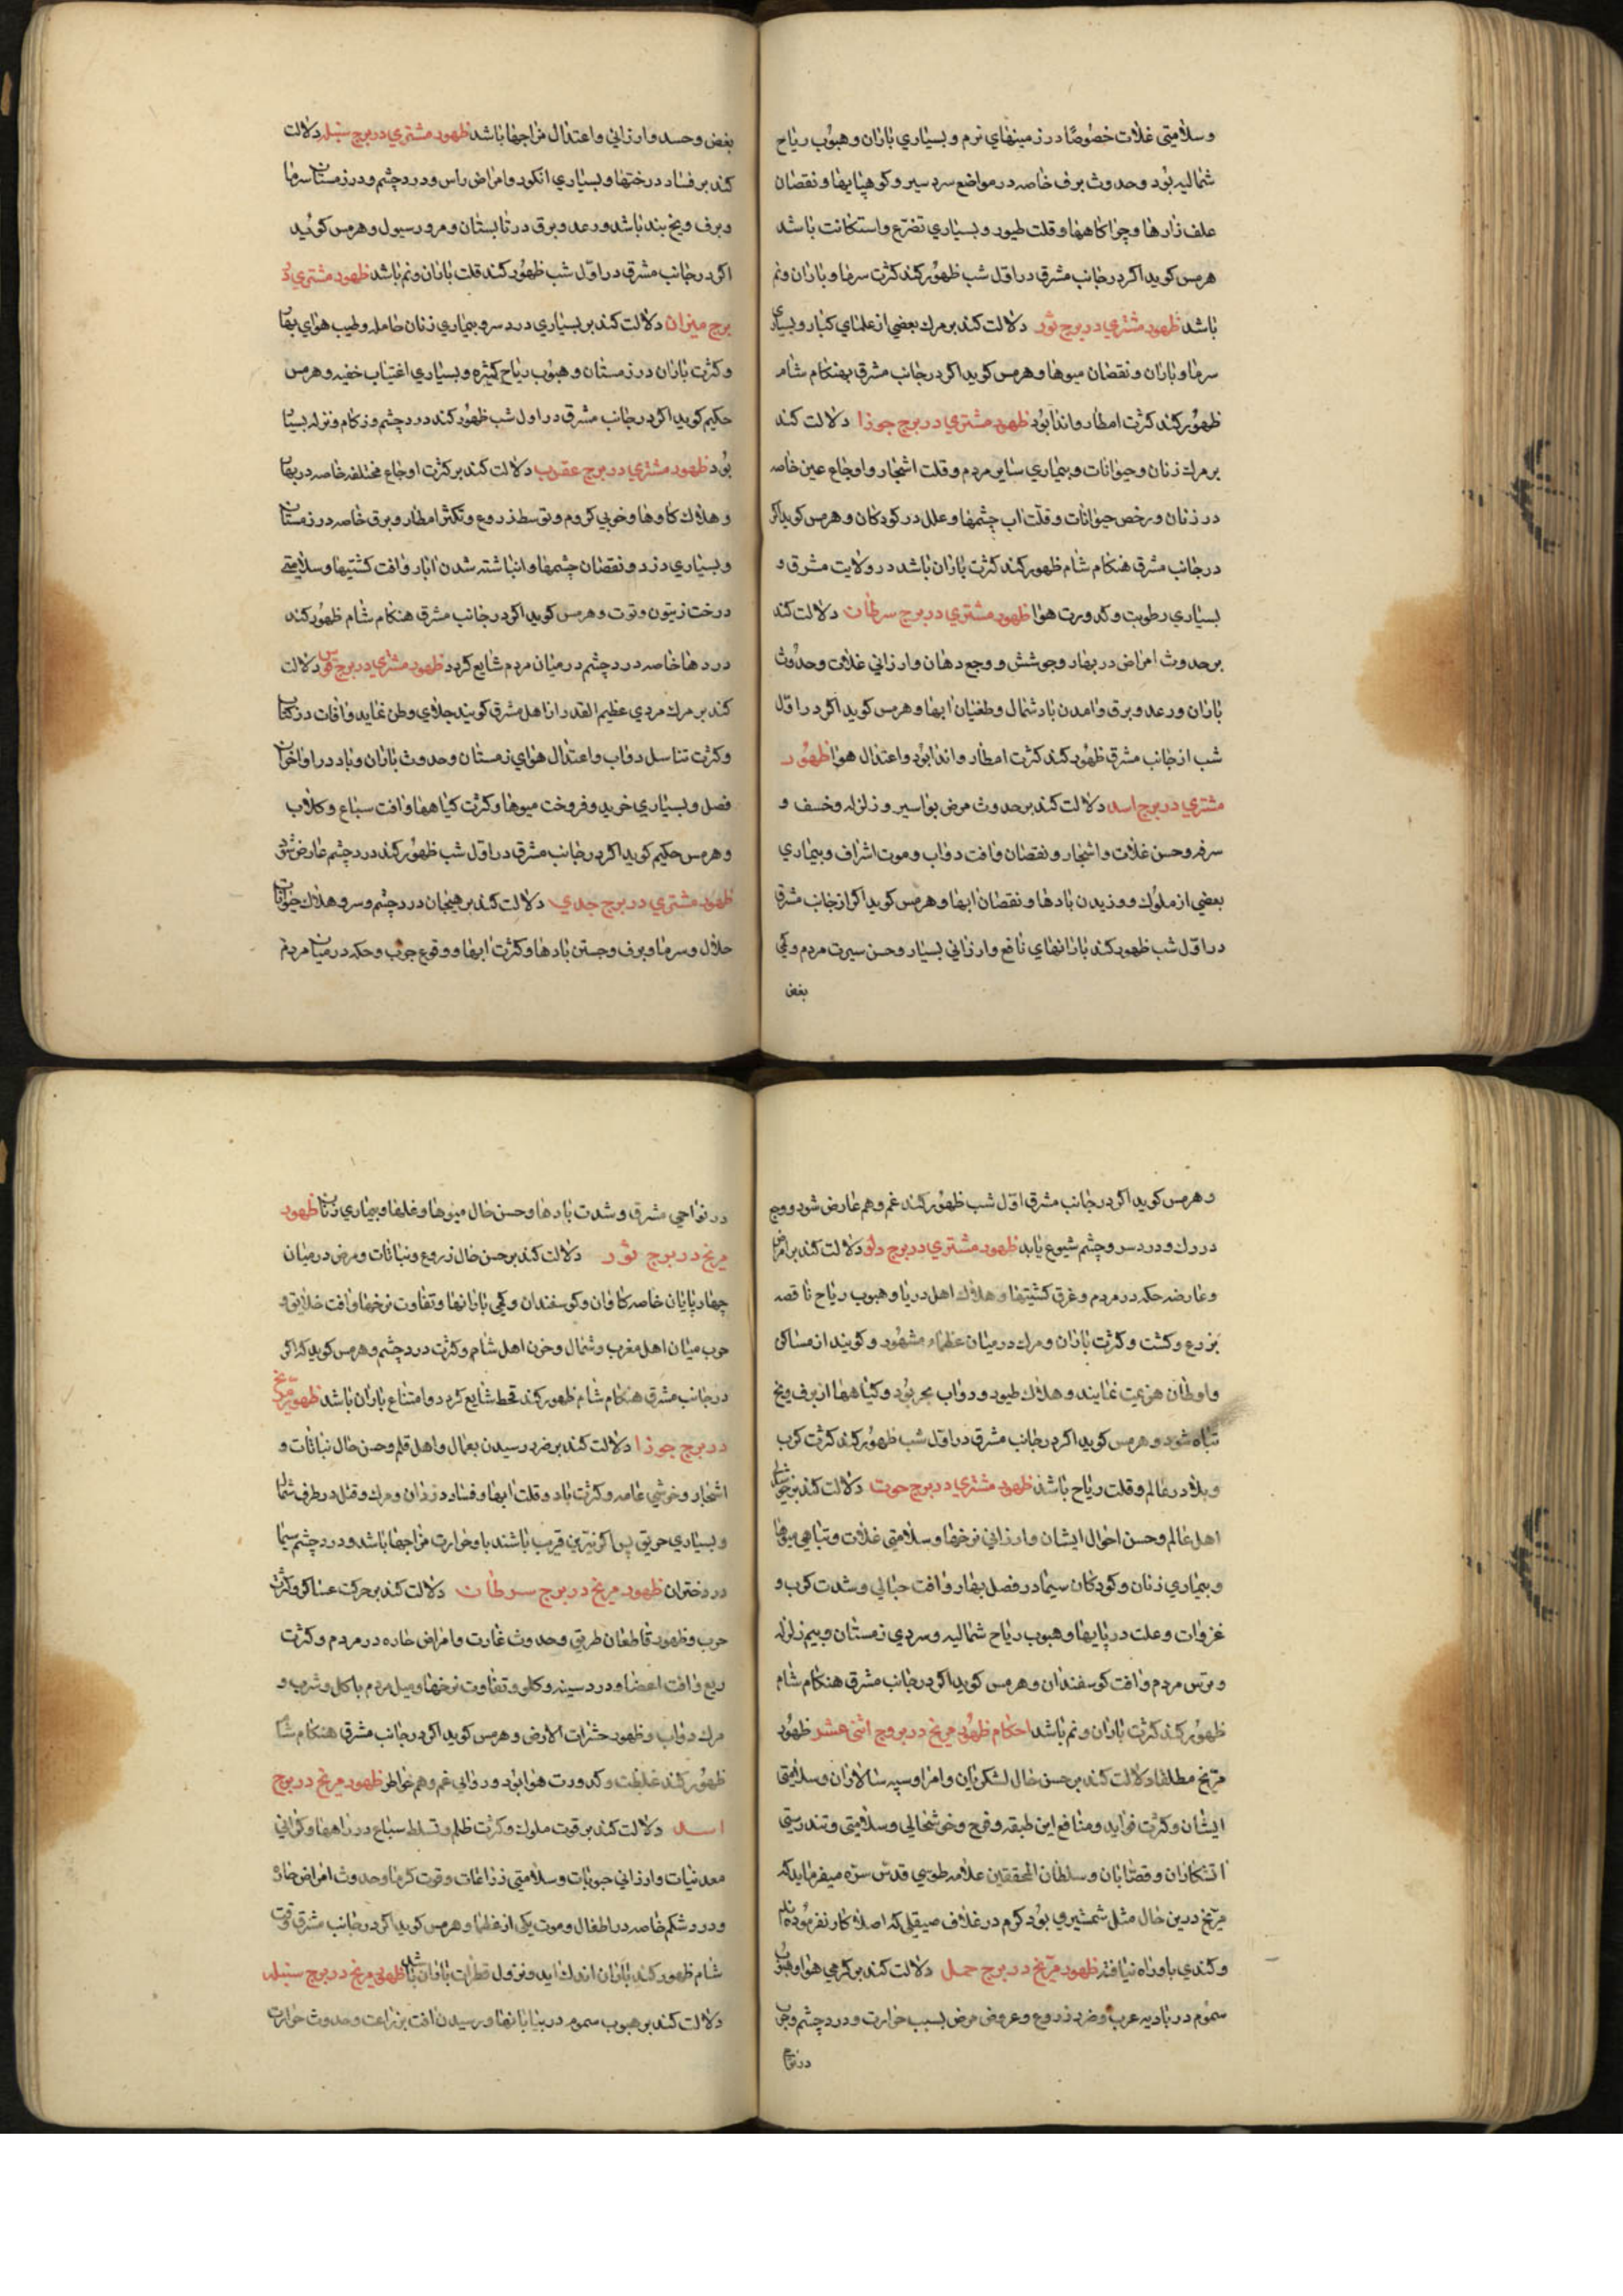 وسلامتی غلات خصوصًا در زمینهای نرم و بسیاری باران و هبوب ریاح
شمالیه بود وحدوث برف خاصه در مواضع سردسیر و کوهپایها و نقصان
علف زارها و چراکاهها و قلت طیور و بسیاری تضرع و استکانت باشد
هرمس کوید اکر در جانب مشرق در اول شب ظهور کند کثرت سرما و باران و نم
باشد ظهور مشتری در برج ثور دلالت کند بر مرك بعضی از علمای کبار و بسیاری
سرما و باران و نقصان میوها و هرمس کوید اکر در جانب مشرق بهنکام شام
ظهور کند کثرت امطار و اندا بود ظهور مشتری در برج جوزا دلالت کند
بر مرك زنان و حیوانات و بیماری سایر مردم و قلت اشجار و اوجاع عین خاصه
در زنان و رخص حیوانات و قلت اب چشمها و علل در کودکان و هرمس کوید اکر
در جانب مشرق هنکام شام ظهور کند کثرت باران باشد در ولایت مشرق و
بسیاری رطوبت و کدورت هوا ظهور مشتری در برج سرطان دلالت کند
بر حدوث امراض در بهار و جوشش و وجع دهان و ارزانی غلات وحدوث
باران و رعد و برق و امدن باد شمال و طغیان ابها و هرمس کوید اکر در اول
شب از جانب مشرق ظهور کند کثرت امطار و اندا بود و اعتدال هوا ظهور
مشتری در برج اسد دلالت کند بر حدوث مرض بواسیر و زلزله و خسف و
سرفه و حسن غلات و اشجار و نقصان و افت دواب و موت اشراف و بیماری
بعضی از ملوك و وزیدن بادها و نقصان ابها و هرمس کوید اکر از جانب مشرق
در اول شب ظهور کند بارانهای نافع و ارزانی بسیار و حسن سیرت مردم و کمی
بغض
بغض و حسد و ارزانی و اعتدال مزاجها باشد ظهور مشتری در برج سنبله دلالت
کند بر فساد درختها و بسیاری انکور و امراض راس و درد چشم و در زمستان سرما
و برف و یخ بند باشد و رعد و برق در تابستان و مرور سیول و هرمس کوئید
اکر در جانب مشرق در اول شب ظهور کند قلت باران و نم باشد ظهور مشتری در
برج میزان دلالت کند بر بسیاری درد سر و بیماری زنان حامله و طیب هوای بهار
و کثرت باران در زمستان و هبوب ریاح کثیره و بسیاری اغتیاب خفیه و هرمس
حکیم کوید اکر در جانب مشرق در اول شب ظهور کند درد چشم و زکام و نزله بسیار
بود ظهور مشتری در برج عقرب دلالت کند بر کثرت اوجاع مختلفه خاصه در بهار
و هلاك کاوها و خوبی کروم و توسط زروع و تکثر امطار و برق خاصه در زمستان
و بسیاری دزد و نقصان چشمها و انباشته شدن انبار و افت کشتیها و سلامتی
درخت زیتون و توت و هرمس کوید اکر در جانب مشرق هنکام شام ظهور کند
دردها خاصه درد چشم در میان مردم شایع کردد ظهور مشتری در برج قوس دلالت
کند بر مرك مردی عظیم القدر از اهل مشرق کویند جلای وطن نماید و افات در کتان
و کثرت تناسل دواب و اعتدال هوای زمستان وحدوث باران و باد در اواخر ان
فصل و بسیاری خرید و فروخت میوها و کثرت کیاهها و افت سباع و کلاب
و هرمس حکیم کوید اکر در جانب مشرق در اول شب ظهور کند درد چشم عارض شود
ظهور مشتری در برج جدی دلالت کند بر هیجان درد چشم و سر و هلاك حیوانات
حلال و سرما و برف و جستن بادها و کثرت ابها و وقوع جرب و حکه در میان مردم
و هرمس کوید اکر در جانب مشرق اول شب ظهور کند غم و هم عارض شود و وجع
در رك و درد سر و چشم شیوع یابد ظهور مشتری در برج دلو دلالت کند بر امراض
و عارضه حکه در مردم و غرق کشتیها و هلاك اهل دریا و هبوب ریاح ناقصه
بزرع و کشت و کثرت باران و مرك در میان عظماء مشهور و کویند از مساکن
و اوطان هزیمت نمایند و هلاك طیور و دواب بحر بود و کیاهها از برف و یخ
تباه شود و هرمس کوید اکر در جانب مشرق در اول شب ظهور کند کثرت کرب
و بلا در عالم و قلت ریاح باشد ظهور مشتری در برج حوت دلالت کند بر خوشحالی
اهل عالم و حسن احوال ایشان و ارزانی نرخها و سلامتی غلات و تباهی میوها
و بیماری زنان و کودکان سیما در فصل بهار و افت جبالی و شدت کرب و
غزوات و علت در پایها و هبوب ریاح شمالیه و سردی زمستان و بیم زلزله
و ترس مردم و افت کوسفندان و هرمس کوید اکر در جانب مشرق هنکام شام
ظهور کند کثرت باران و نم باشد احکام ظهور مریخ در بروج اثنی عشر ظهور
مریخ مطلقا دلالت کند بر حسن حال لشکریان و امرا و سپه سالاران و سلامتی
ایشان و کثرت فواید و منافع این طبقه و فرح و خوشحالی و سلامتی و تندرستی
اتشکاران و قصابان و سلطان المحققین علامه طوسی قدس سره میفرماید که
مریخ درین حال مثل شمشیری بود کرم در غلاف صیقلی که اصلا کار نفرموده باشد
و کندی باو راه نیافته ظهور مریخ در برج حمل دلالت کند بر کرمی هوا و هبوب
سموم در بادیه عرب و ضرر زروع و عروض مرض بسبب حرارت و درد چشم و جرب
در نواحی
در نواحی مشرق و شدت بادها و حسن حال میوها و غلها و بیماری زنان ظهور
مریخ در برج ثور دلالت کند بر حسن حال زروع و نباتات و مرض در میان
چهارپایان خاصه کاوان و کوسفندان و کمی بارانها و تفاوت نرخها و افت خلایق و
حرب میان اهل مغرب و شمال و حزن اهل شام و کثرت درد چشم و هرمس کوید که اکر
در جانب مشرق هنکام شام ظهور کند قحط شایع کردد و امتناع باران باشد ظهور مریخ
در برج جوزا دلالت کند بر ضرر رسیدن بعمال و اهل قلم و حسن حال نباتات و
اشجار و خوشی عامه و کثرت باد و قلت ابها و فساد دزدان و مرك و قتل در طرف شمال
و بسیاری حریق پس اکر نیرین قریب باشند باو حرارت مزاجها باشد و درد چشم سیما
در دختران ظهور مریخ در برج سرطان دلالت کند بر حرکت عساکر و کثرت
حرب و ظهور قاطعان طریق وحدوث غارت و امراض حاده در مردم و کثرت
ریع و افت اعضا و درد سینه و کلو و تفاوت نرخها و میل مردم باکل و شرب و
مرك دواب و ظهور حشرات الارض و هرمس کوید اکر در جانب مشرق هنکام شام
ظهور کند غلظت و کدورت هوا بود و روانی غم و هم خواطر ظهور مریخ در برج
اسد دلالت کند بر قوت ملوك و کثرت ظلم و تسلط سباع در راهها و کرانی
معدنیات و ارزانی حبوبات و سلامتی زراعات و قوت کرما وحدوث امراض حاده
و درد شکم خاصه در اطفال و موت یکی از عظما و هرمس کوید اکر در جانب مشرق وقت
شام ظهور کند باران اندك اید و نزول قطرات باران باشد ظهور مریخ در برج سنبله
دلالت کند بر هبوب سموم در بیابانها و رسیدن افت بزراعت وحدوث حرارت